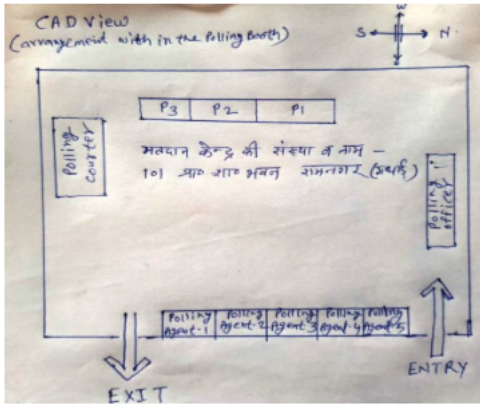 CAD View
(arrangement with in the Polling Booth)
W
S N.
P3 P2 P1
Polling
Courter
मतदान केन्द्र की संख्या व नाम -
101 प्रा० शा० भवन रामनगर
Polling
officer
Polling Agent-1
Polling Agent-2
Polling Agent-3
Polling Agent-4
Polling Agent-5
EXIT
ENTRY